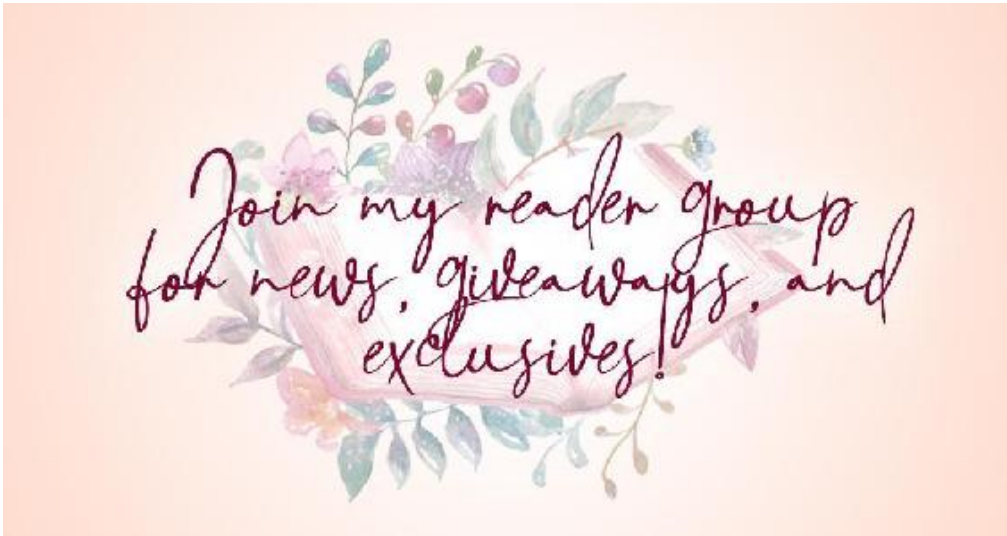 Join my reader group
for news, giveaways, and
exclusives!